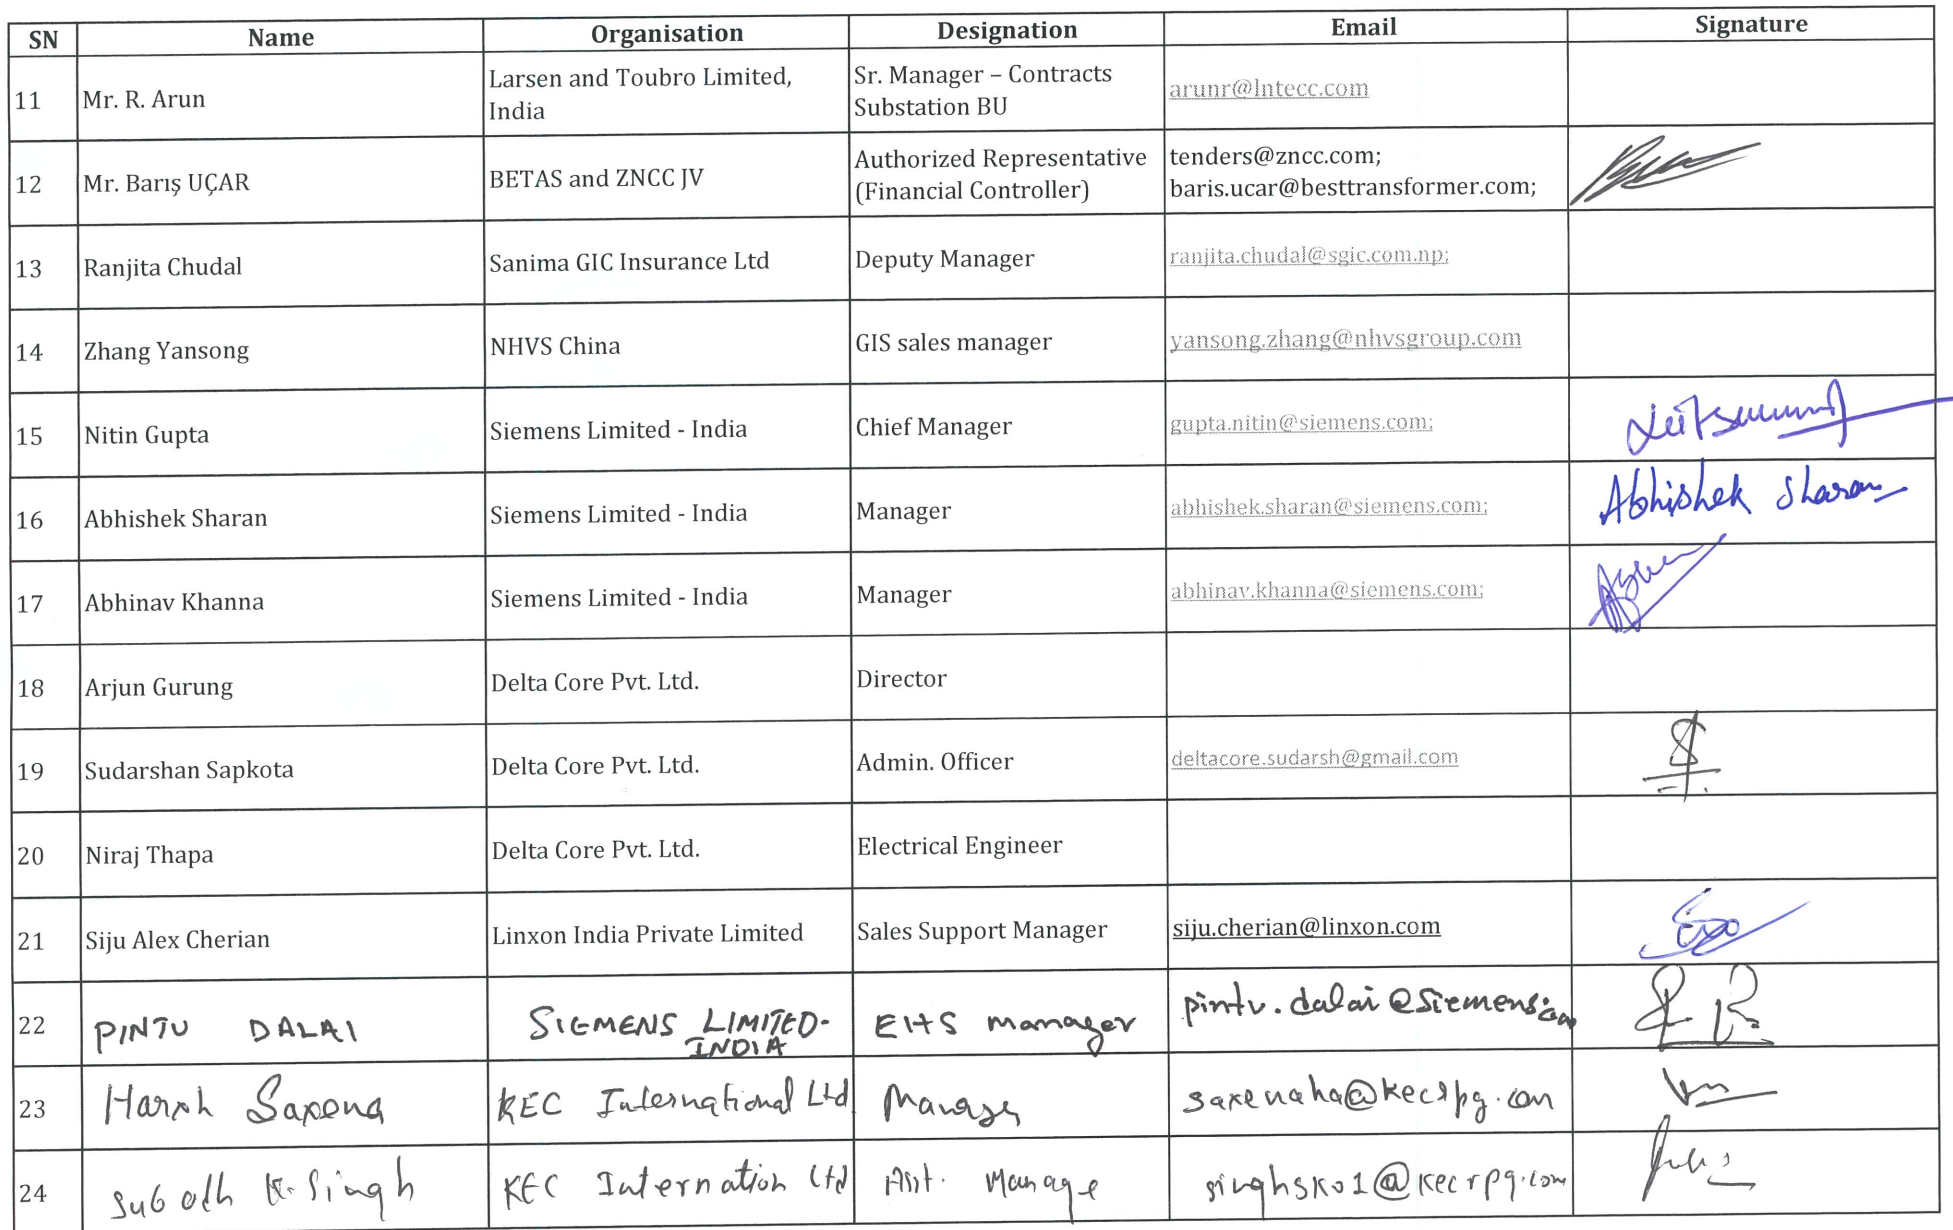 SN Name Organisation Designation Email Signature
11 Mr. R. Arun Larsen and Toubro Limited, India Sr. Manager – Contracts Substation BU arunr@lntecc.com
12 Mr. Barış UÇAR BETAS and ZNCC JV Authorized Representative (Financial Controller) tenders@zncc.com; baris.ucar@besttransformer.com;
13 Ranjita Chudal Sanima GIC Insurance Ltd Deputy Manager ranjita.chudal@sgic.com.np;
14 Zhang Yansong NHVS China GIS sales manager yansong.zhang@nhvsgroup.com
15 Nitin Gupta Siemens Limited - India Chief Manager gupta.nitin@siemens.com;
16 Abhishek Sharan Siemens Limited - India Manager abhishek.sharan@siemens.com; Abhishek Sharan
17 Abhinav Khanna Siemens Limited - India Manager abhinav.khanna@siemens.com;
18 Arjun Gurung Delta Core Pvt. Ltd. Director
19 Sudarshan Sapkota Delta Core Pvt. Ltd. Admin. Officer deltacore.sudarsh@gmail.com
20 Niraj Thapa Delta Core Pvt. Ltd. Electrical Engineer
21 Siju Alex Cherian Linxon India Private Limited Sales Support Manager siju.cherian@linxon.com
22 PINTU DALAI SIEMENS LIMITED-INDIA EHS manager pintu.dalai@siemens.com
23 Harsh Saxena KEC International Ltd Manager saxenaha@kecrpg.com
24 Subodh K. Singh KEC Internation Ltd Asst. Manage singhsk01@kecrpg.com